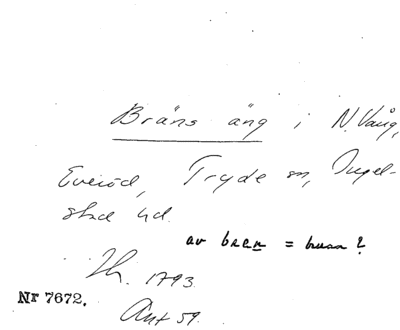 Bräns äng i N. Vång,
Everöd, Tryde sn, Ingel-
stad hd.
av bren =
1793.
Nr 7672.
Ant 59.